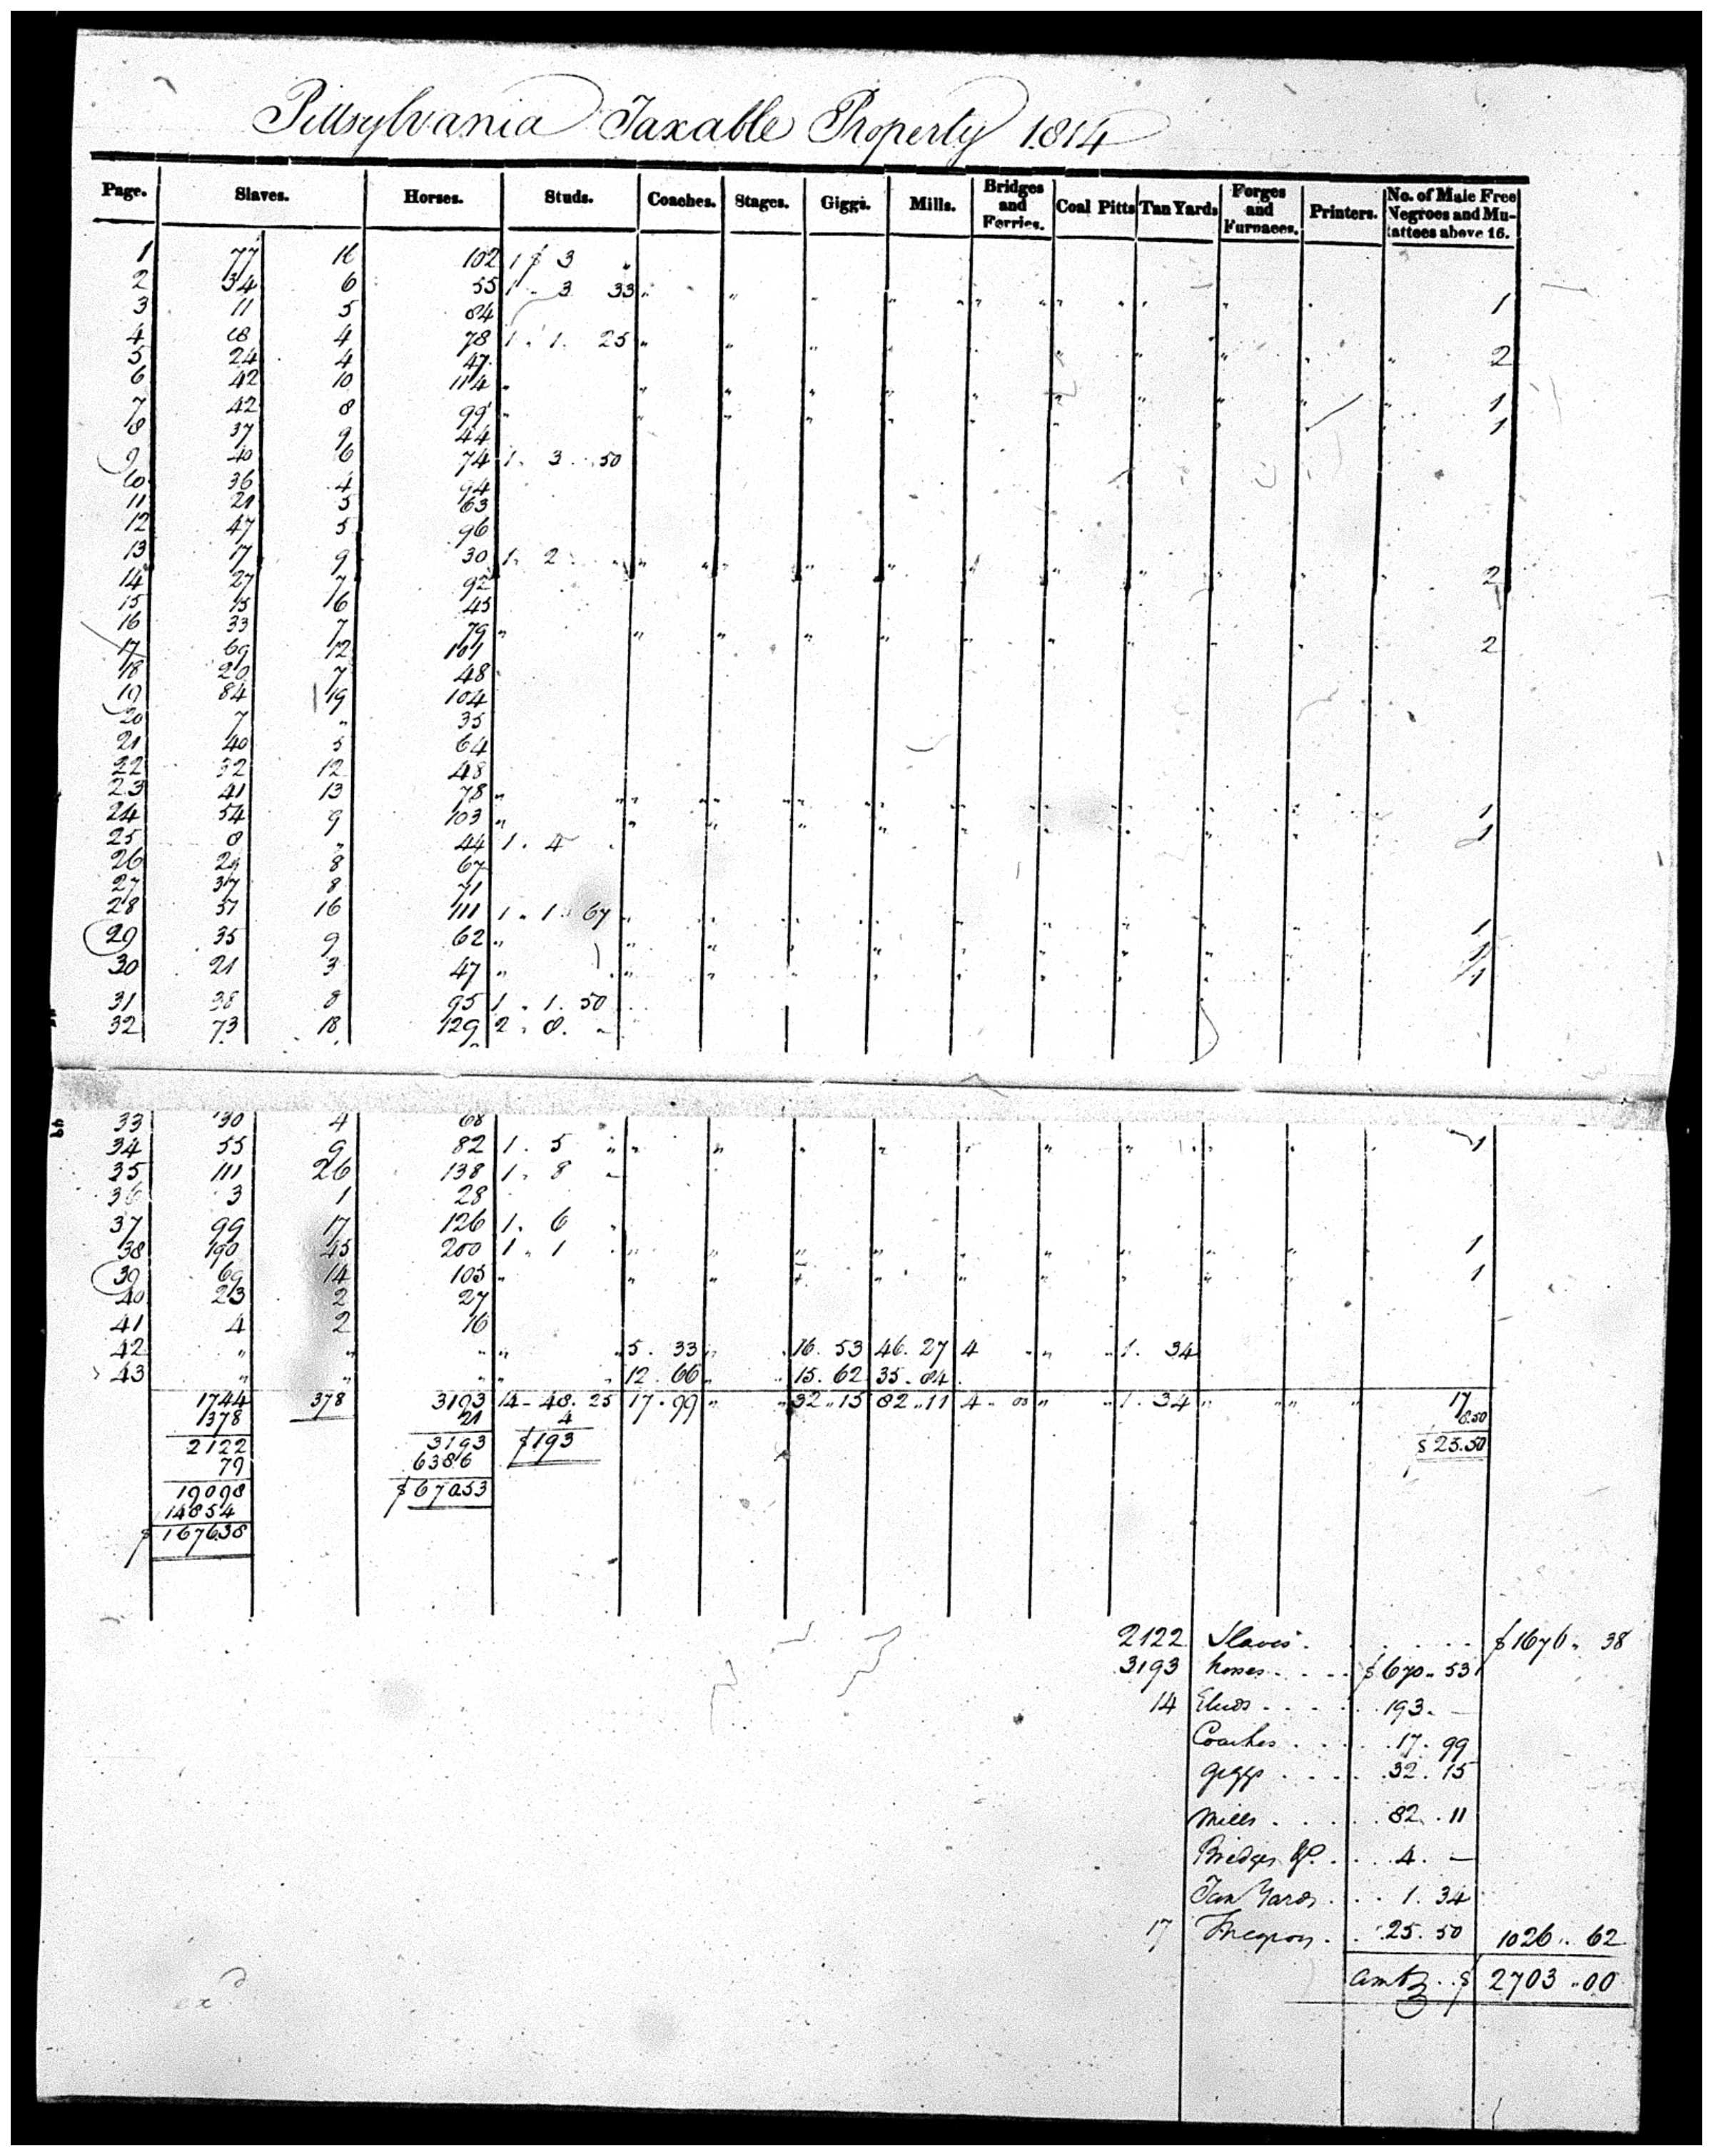 Pittsylvania Taxable Property 1814
Page. Slaves. Horses. Studs. Coaches. Stages. Giggs. Mills. Bridges and Ferries. Coal Pitts Tan Yards Forges and Furnaces. Printers. No. of Male Free Negroes and Mulattoes above 16.
1 77 16 102 1 $ 3 "
2 34 6 55 1 - 3 33 " " " " " " " " " " 1
3 11 5 84
4 18 4 78 1 . 1 . 25 " " " " " " " " " 2
5 24 4 47
6 42 10 114 " " " " " " " " " " " 1
7 42 8 99 " " " " " " " " " " " 1
8 37 9 44
9 40 6 74 1 . 3 . 50
10 36 4 94
11 21 5 63
12 47 5 96
13 17 9 30 1 . 2 . " " " " " " " " " " 2
14 27 7 92
15 15 16 45
16 33 7 79 " " " " " " " " " " " 2
17 69 12 101
18 20 7 48
19 84 19 104
20 7 " 35
21 40 5 64
22 32 12 48
23 41 13 78 " " " " " " " " " " " 1
24 54 9 103 " " " " " " " " " " " 1
25 8 " 44 1 . 4 .
26 24 8 67
27 37 8 71
28 57 16 111 1 . 1 . 67 " " " " " " " " " 1
29 35 9 62 " " " " " " " " " " 1
30 21 3 47 " " " " " " " " " " 1
31 38 8 95 1 . 1 . 50
32 73 18 129 2 . 8 . -
33 30 4 68
34 55 9 82 1 . 5 " " " " " " " " " " 1
35 111 26 138 1 . 8 -
36 3 1 28
37 99 17 126 1 . 6 .
38 190 45 200 1 . 1 . " " " " " " " " " 1
39 69 14 105 " " " " " " " " " " 1
40 23 2 27
41 4 2 16
42 " " " " " 5 . 33 " " 16 . 53 46 . 27 4 " " " 1 . 34
43 " " " " " 12 . 66 " " 15 . 62 35 . 84
1744 378 3193 14 - 48 . 25 17 . 99 " " 32 .. 15 82 .. 11 4 .. 00 " " 1 . 34 " " " 17
1378 21 4 8.50
2122 3193 $193 $ 25.50
79 6386
19098 $ 670.53
14854
$ 1676.38
2122 Slaves . . . . . $ 1676 .. 38
3193 horses . . . . $ 670 .. 53
14 Studs . . . . . 193 . —
Coaches . . . . 17 . 99
Giggs . . . . 32 . 15
Mills . . . . . 82 . 11
Bridges &c. . . . 4 . —
Tan Yards . . . 1 . 34
17 F negroes . . 25 . 50 1026 .. 62
amt . . $ 2703 .. 00